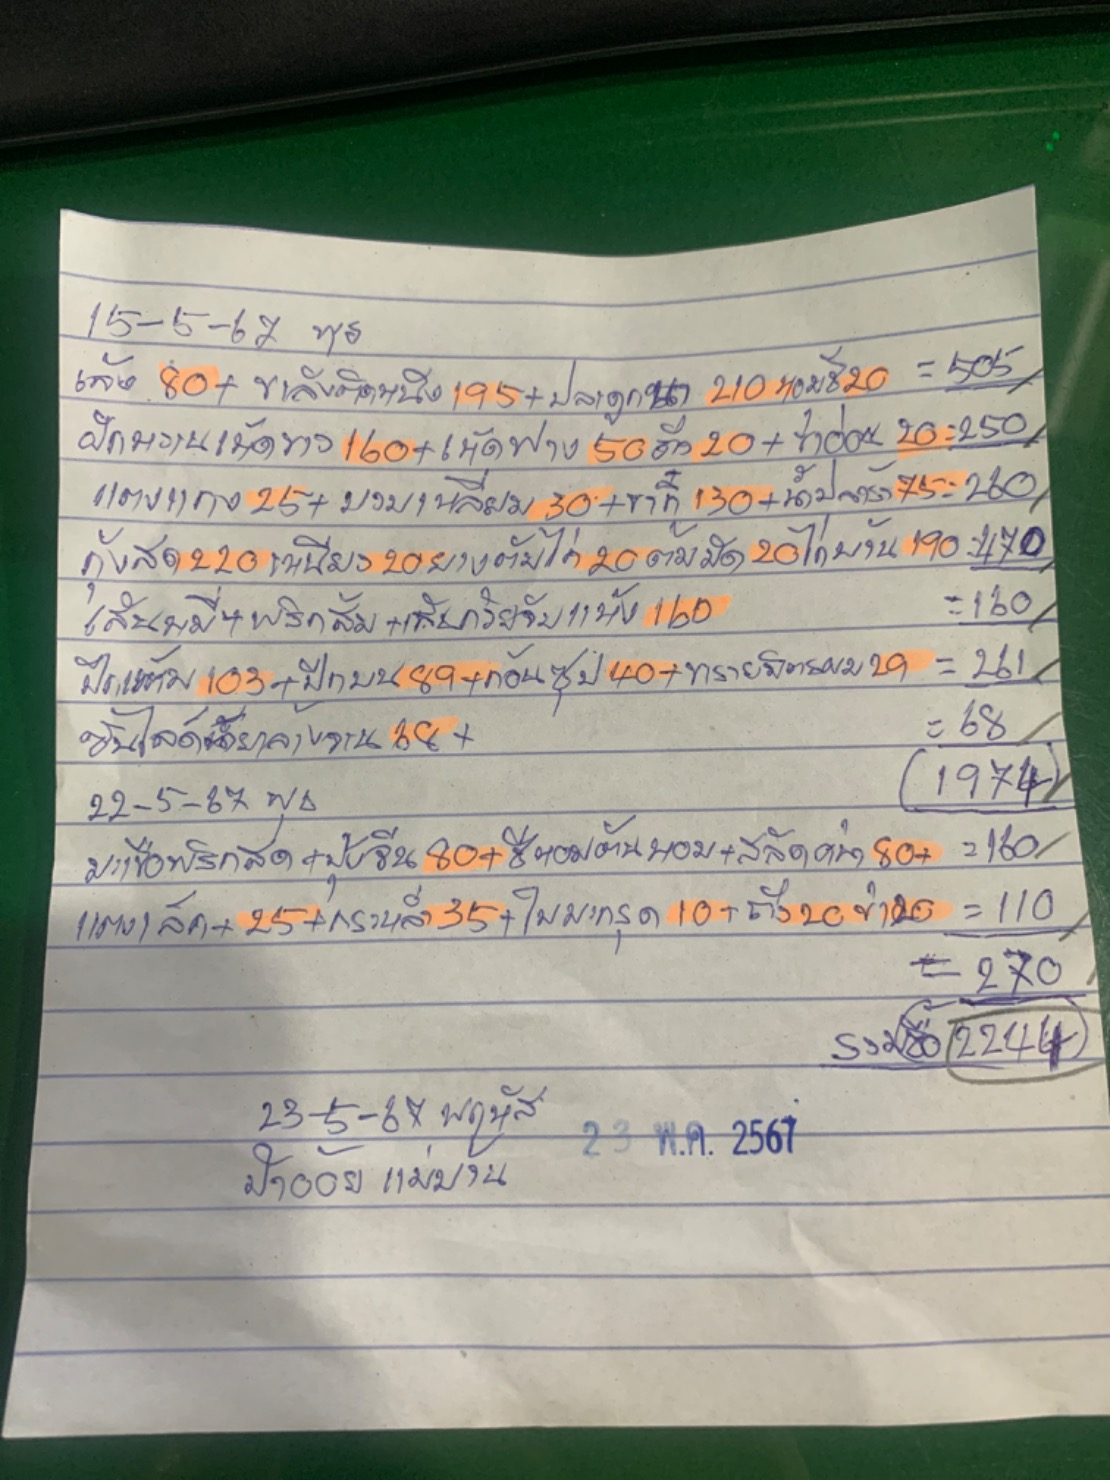 15-5-67 พุธ
เล้ง 80+ ขาลังติดหนัง 195+ ปลาดุกนา 210 หอมชี 20 = 505
ฝักหวานเห็ดขาว 160+ เห็ดฟาง 50 20+ ข่าอ่อน 20 = 250
แตงแกง 25+ บวบเหลี่ยม 30+ 130+ น้ำปลาร้า 75 = 260
กุ้งสด 220 เหนียว 20 ยางตับไก่ 20 ต้มมัด 20 ไก่บ้าน 190 = 470
เส้นหมี่+ พริกส้ม + เส้นก๋วยจั๊บแห้ง 160 = 160
ปีกเต็ม 103+ ปีกบน 89+ ก้อนซุป 40+ 29 = 261
ซันไลต์น้ำยาล้างจาน 68+ = 68
(1974)
22-5-67 พุธ
มะเขือพริกสด + กุ้งจีน 80+ ชีหอมต้นหอม + สลัดคน้า 80+ = 160
แตงเล็ก + 25+ กะหล่ำ 35+ ใบมะกรูด 10+ ถั่ว 20 ข่า 20 = 110
= 270
รวมซื้อ 2244
23-5-67 พฤหัส
23 พ.ค. 2567
ป้าอ้อย แม่บ้าน